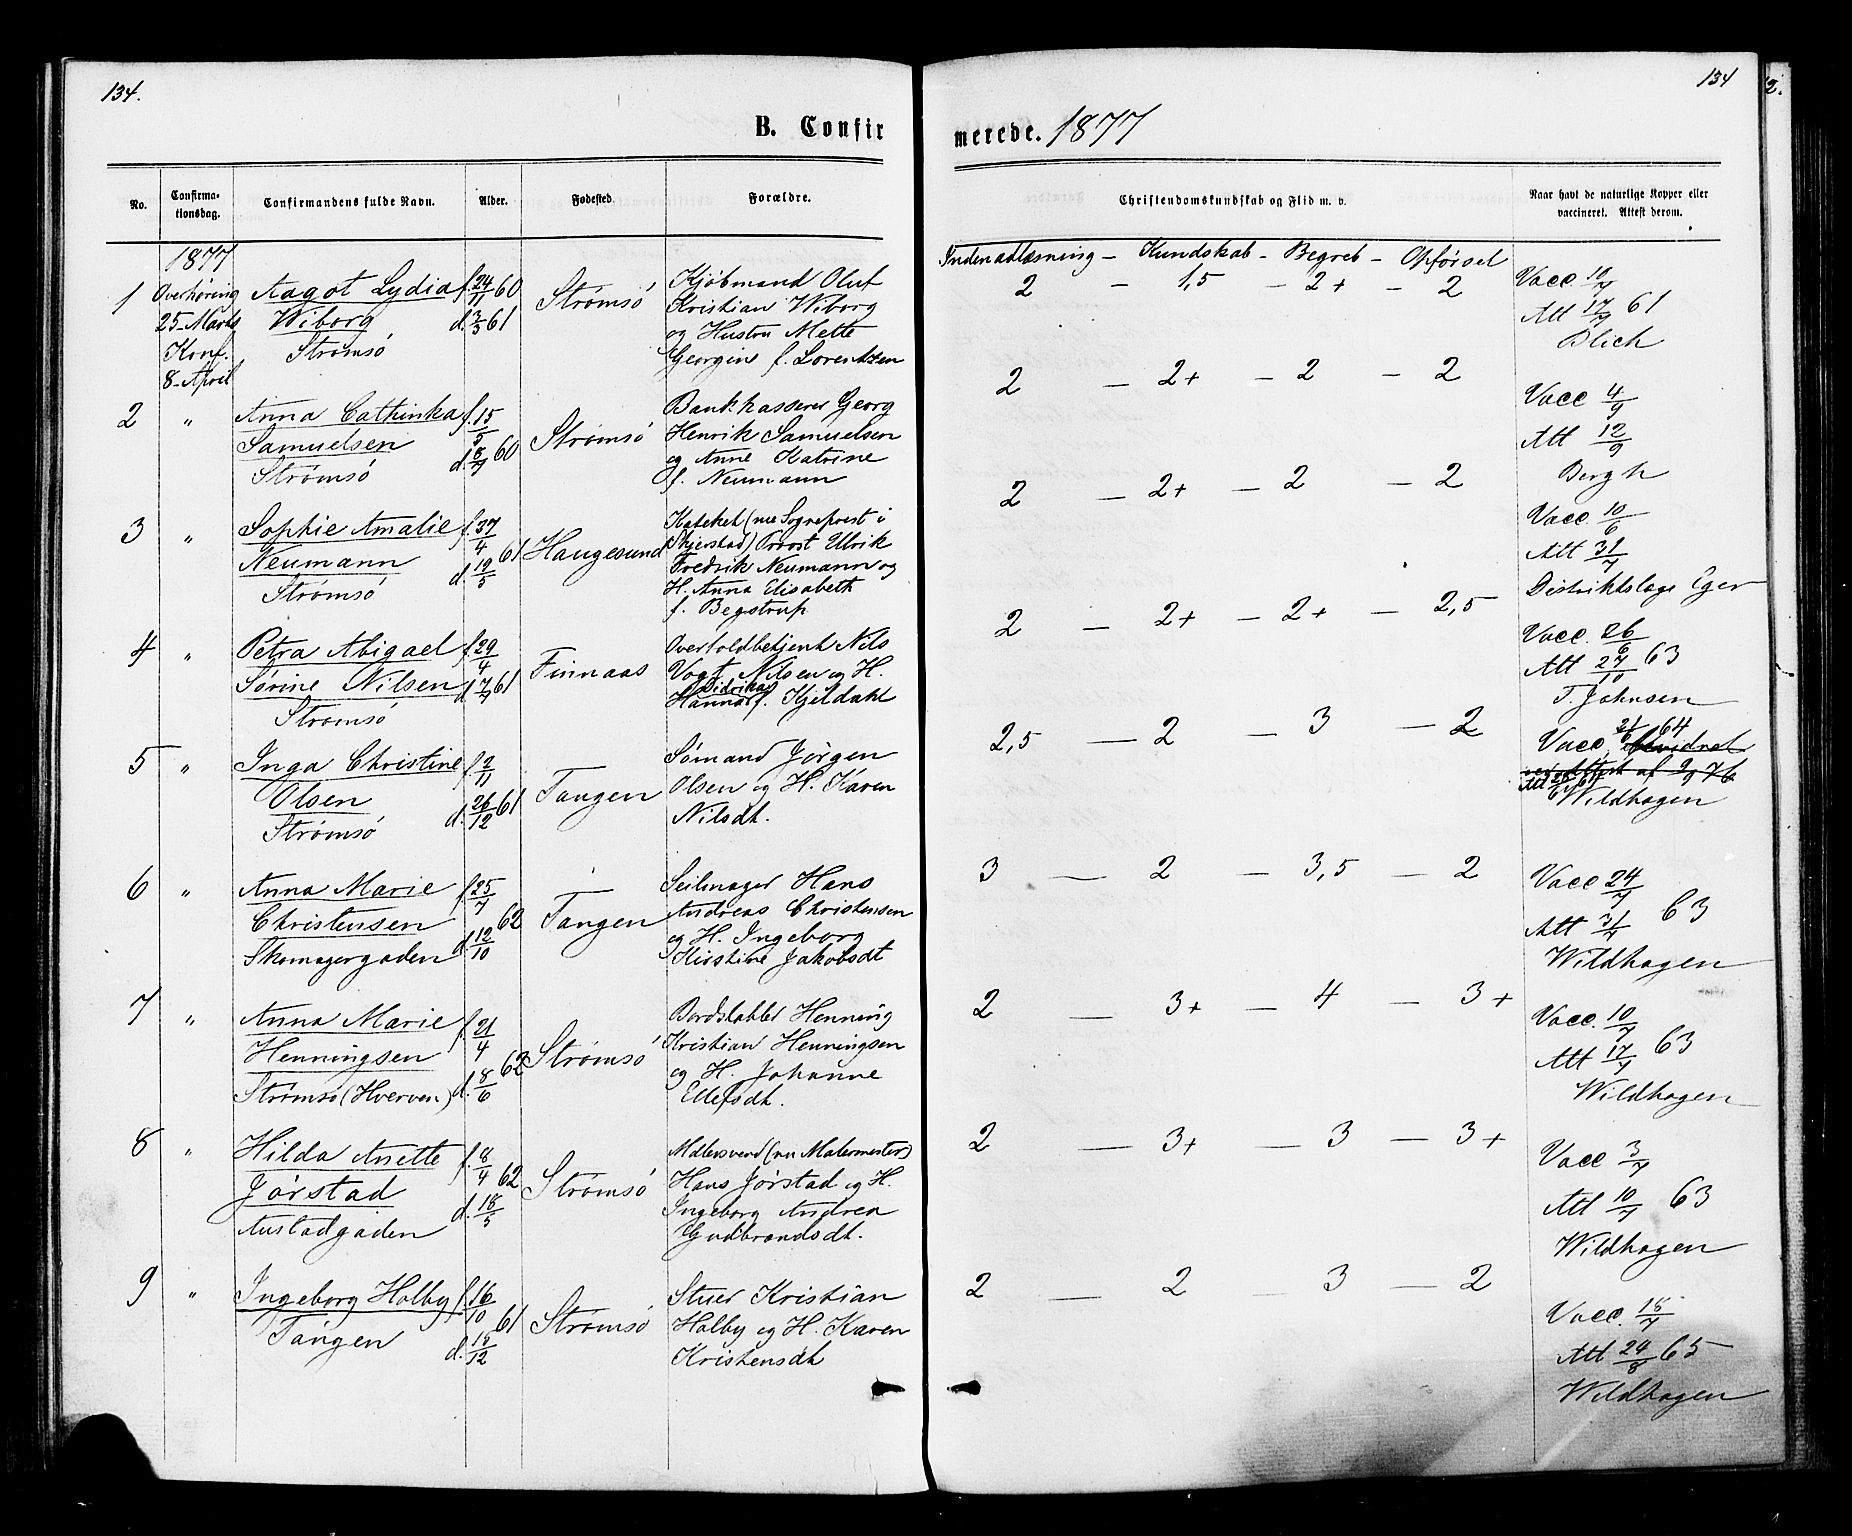 134.
134
2.
B. Confir
merede. 1877
No.
Confirma-
tionsdag.
Confirmandens fulde Navn.
Alder.
Fødested
Forældre.
Christendomskundskab og Flid m. v.
Naar havt de naturlige Kopper eller
vaccineret. Attest derom.
1877
Indenadlæsning - Kundskab - Begreb - Opførsel
1
Overhøring
25 Marts
Konf.
8. April
Aagot Lydia
Wiborg
Strømsö
f. 24/11 60
d. 3/3 61
Strømsö
Kjöbmand Oluf
Kristian Wiborg
og Hustru Mette
Georgine f. Lorentzen
2 - 1,5 - 2+ - 2
Vacc 10/7
Att 17/7 61
Blich
2
"
Anna Cathinka
Samuelsen
Strømsö
f. 15/5
d. 8/7 60
Strømsö
Bankkasserer Georg
Henrik Samuelsen
og Anne Katrine
f. Neumann
2 - 2+ - 2 - 2
Vacc 4/9
Att 12/9
Bergh
3
"
Sophie Amalie
Neumann
Strømsö
f. 27/4
d. 19/5 61
Haugesund
Kateket (nu Sogneprest i
Skjerstad) Provst Ulrik
Fredrik Neumann og
H. Anna Elisabeth
f. Begstrup
2 - 2+ - 2 - 2
Vacc 10/6
Att 31/7
Distriktslæge Eger
4
"
Petra Abigael
Sörine Nilsen
Strømsö
f. 29/4
d. 7/7 61
Finnaas
Overtoldbetjent Nils
Vogt Nilsen og H.
Hanna Didrikke f. Kjeldahl
2 - 2+ - 2+ - 2,5
Vacc. 26/6
Att 27/10 63
T. Johnsen
5
"
Inga Christine
Olsen
Strømsö
f. 2/11
d. 26/12 61
Tangen
Sömand Jörgen
Olsen og H. Karen
Nilsdt.
2,5 - 2 - 3 - 2
Vacc. 21/6 64
Wildhagen
6
"
Anna Marie
Christensen
Skomagergaden
f. 25/7
d. 12/10 62
Tangen
Seilmager Hans
Andreas Christensen
og H. Ingeborg
Kirstine Jakobsdt
3 - 2 - 3,5 - 2
Vacc 24/7
Att 31/7 63
Wildhagen
7
"
Anna Marie
Henningsen
Strømsö (Hverven)
f. 21/4
d. 8/6 62
Strømsö
Bordstabler Henning
Kristian Henningsen
og H. Johanne
Ellefsdt.
2 - 3+ - 4 - 3+
Vacc. 10/7
Att 17/7 63
Wildhagen
8
"
Hilda Anette
Jörstad
Austadgaden
f. 8/4 62
d. 18/5
Strømsö
Malersvend (nu Malermester)
Hans Jörstad og H.
Ingeborg Andrea
Gudbrandsdt.
2 - 3+ - 3 - 3+
Vacc 3/7
Att 10/7 63
Wildhagen
9
"
Ingeborg Holby
Tangen
f. 16/10 61
d. 15/12
Strømsö
Stuer Kristian
Holby og H. Karen
Kristensdt
2 - 2 - 3 - 2
Vacc. 18/7
Att 24/8 65
Wildhagen